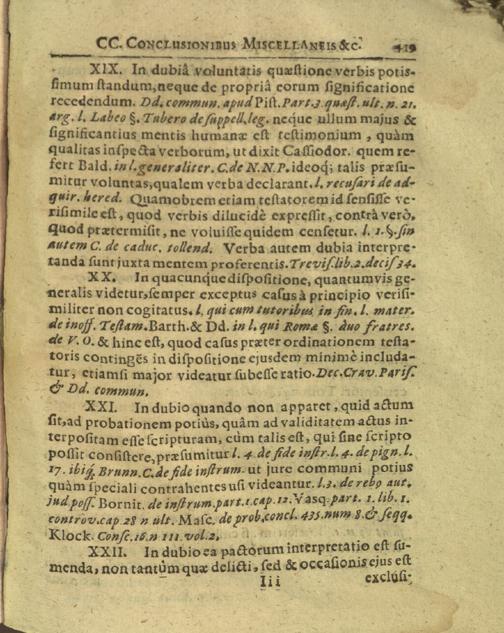 CC. CONCLUSIONIBUS MISCELLANEIS &c. 419
XIX. In dubiâ voluntatis quæstione verbis potis-
simum standum, neque de propriâ eorum significatione
recedendum. Dd. commun. apud Pist. Part. 3. quæst. ult. n. 21.
arg. l. Labeo §. Tubero de suppell. leg. neque ullum majus &
significantius mentis humanæ est testimonium, quàm
qualitas inspecta verborum, ut dixit Cassiodor. quem re-
fert Bald. in l. generaliter. C. de N. N. P. ideoq; talis præsu-
mitur voluntas, qualem verba declarant. l. recusari de ad-
quir. hered. Quamobrem etiam testatorem id sensisse ve-
risimile est, quod verbis dilucidè expressit, contrà verò,
quod prætermisit, ne voluisse quidem censetur. l. 1. §. sin
autem C. de caduc. tollend. Verba autem dubia interpre-
tanda sunt juxta mentem proferentis. Trevis. lib. 2. decis 34.
XX. In quacunque dispositione, quantumvis ge-
neralis videtur, semper exceptus casus à principio verisi-
militer non cogitatus. l. qui cum tutoribus in fin. l. mater.
de inoff. Testam. Barth. & Dd. in l. qui Romæ §. duo fratres.
de V. O. & hinc est, quod casus præter ordinationem testa-
toris contingēs in dispositione ejusdem minimè includa-
tur, etiamsi major videatur subesse ratio. Dec. Crav. Paris.
& Dd. commun.
XXI. In dubio quando non apparet, quid actum
sit, ad probationem potiùs, quàm ad validitatem actus in-
terpositam esse scripturam, cùm talis est, qui sine scripto
possit consistere, præsumitur l. 4. de fide instr. l. 4. de pign. l.
17. ibiq; Brunn. C. de fide instrum. ut jure communi potius
quàm speciali contrahentes usi videantur. l. 3. de rebo aut.
jud. poss. Bornit. de instrum. part. 1. cap. 12. Vasq. part. 1. lib. 1.
controv. cap 28 n ult. Masc. de prob. concl. 435. num 8. & seqq.
Klock. Cons. 16. n 111. vol. 2.
XXII. In dubio ea pactorum interpretatio est su-
menda, non tantùm quæ delicti, sed & occasionis ejus est
Iii exclusi-